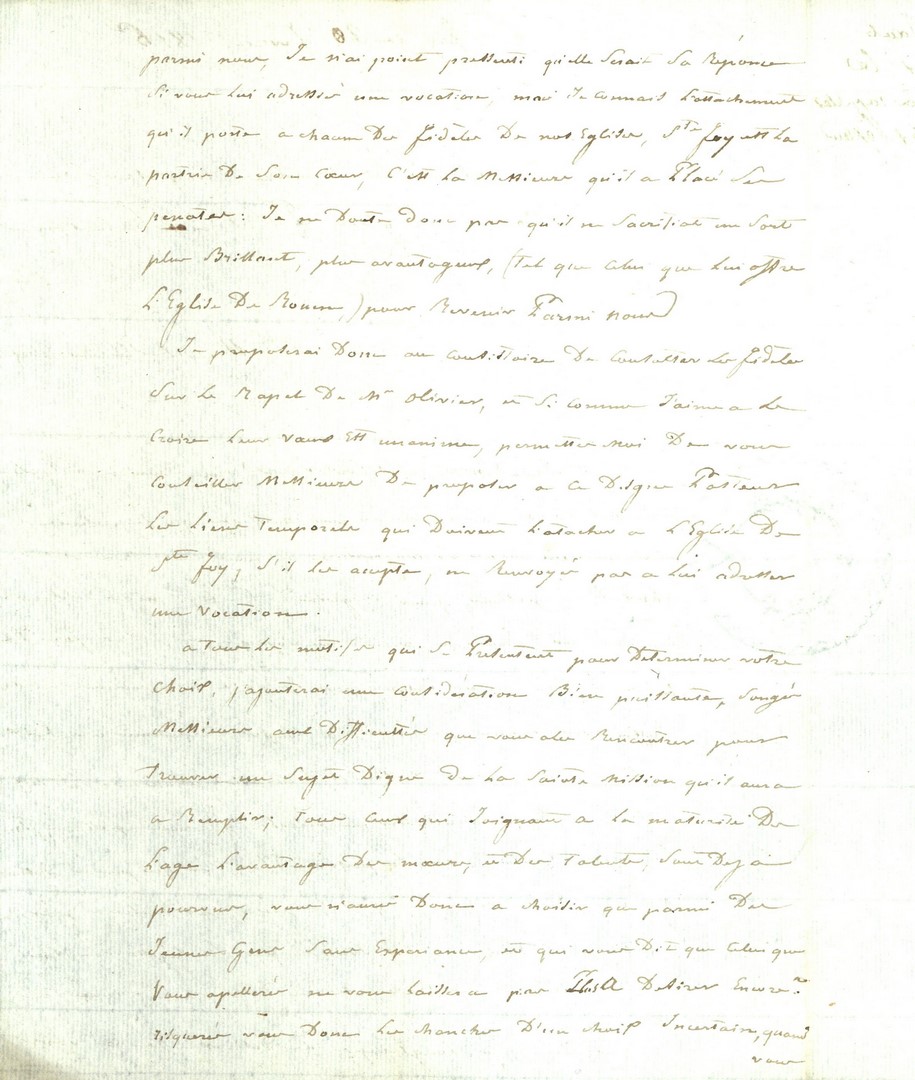 parmi nous, Je n'ai point pressenti qu'elle serait Sa Réponce
Si vous lui adressié une vocation, mais Je connais L'attachement
qu'il porte a chacun Des fidèles De nos Eglises, Ste foy est La
patrie De Son Cœur, C'est La Messieurs qu'il a Placé Ses
penates: Je ne Doute donc pas qu'il ne Sacrifiat un Sort
plus Brillant, plus avantageux, (tel que Celui que Lui offre
L'Eglise De Rouen,) pour Revenir Parmi nous
Je proposerai Donc au Consistoire De Consulter Les fidèles
Sur Le Rapel De Mr Olivier, et Si comme J'aime a Le
Croire Leur vœux Est unanime, permettes Moi De vous
Conseiller Messieurs De proposer a Ce Digne Pasteur
Les Liens Temporels qui Doivent L'atacher a L'Eglise De
Ste foy, S'il Les accepte, ne Renvoyés pas a Lui adresser
une Vocation.
a Tous Les motifs qui Se Présentent pour Determiner votre
Choix, j'ajouterai une Considération Bien puissante, Songés
Messieurs aux Difficultés que vous alés Rencontrer pour
Trouver un Sujet Digne de La Sainte Mission qu'il aura
a Remplir; Tous Ceux qui Joignent a la maturité De
L'age L'avantage Des mœurs, et Des Talents, Sont Deja
pourvus, vous n'aurés Donc a choisir que parmi Des
Jeunes Gens Sans Experiance, et qui vous Dit que Celui que
Vous apellerés ne vous Laissera pas Desirer Encore?
Risquerés vous Donc Les Chances D'un choix Incertain, quand
vous